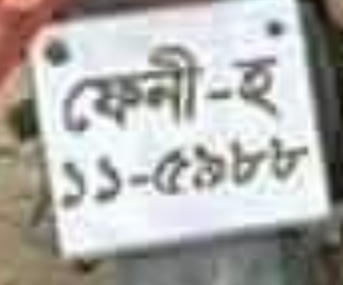 ফেনী-হ
১১-৫৯৮৮